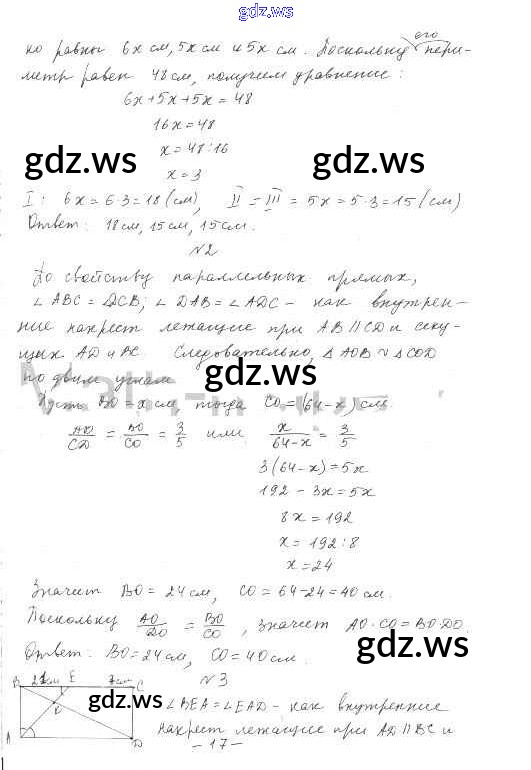 gdz.ws
его
ко равны 6x см, 5x см и 5x см. Поскольку пери-
метр равен 48 см, получим уравнение:
6x+5x+5x=48
16x=48
x=48:16
gdz.ws gdz.ws
x=3
I: 6x=6·3=18(см), II-III=5x=5·3=15(см)
Ответ: 18см, 15см, 15см.
N2
По свойству параллельных прямых,
∠ABC = DCB; ∠DAB=∠ADC - как внутрен-
ние накрест лежащие при AB∥CD и секу-
щих AD и BC. Следовательно, △AOB ∾ △COD
gdz.ws
по двум углам
Пусть BO=x см, тогда CO=(64-x) см.
AO/CD = BO/CO = 3/5 или x/64-x = 3/5
3(64-x)=5x
192-3x=5x
8x=192
x=192:8
gdz.ws gdz.ws
x=24
Значит BO=24см, CO=64-24=40см.
Поскольку AO/DO = BO/CO, значит AO·CO=BO·DO.
gdz.ws
Ответ: BO=24см, CO=40см.
N3
B 21см E 7см C
gdz.ws
K
∠BEA=∠EAD - как внутренние
накрест лежащие при AD∥BC и
A D
-17-